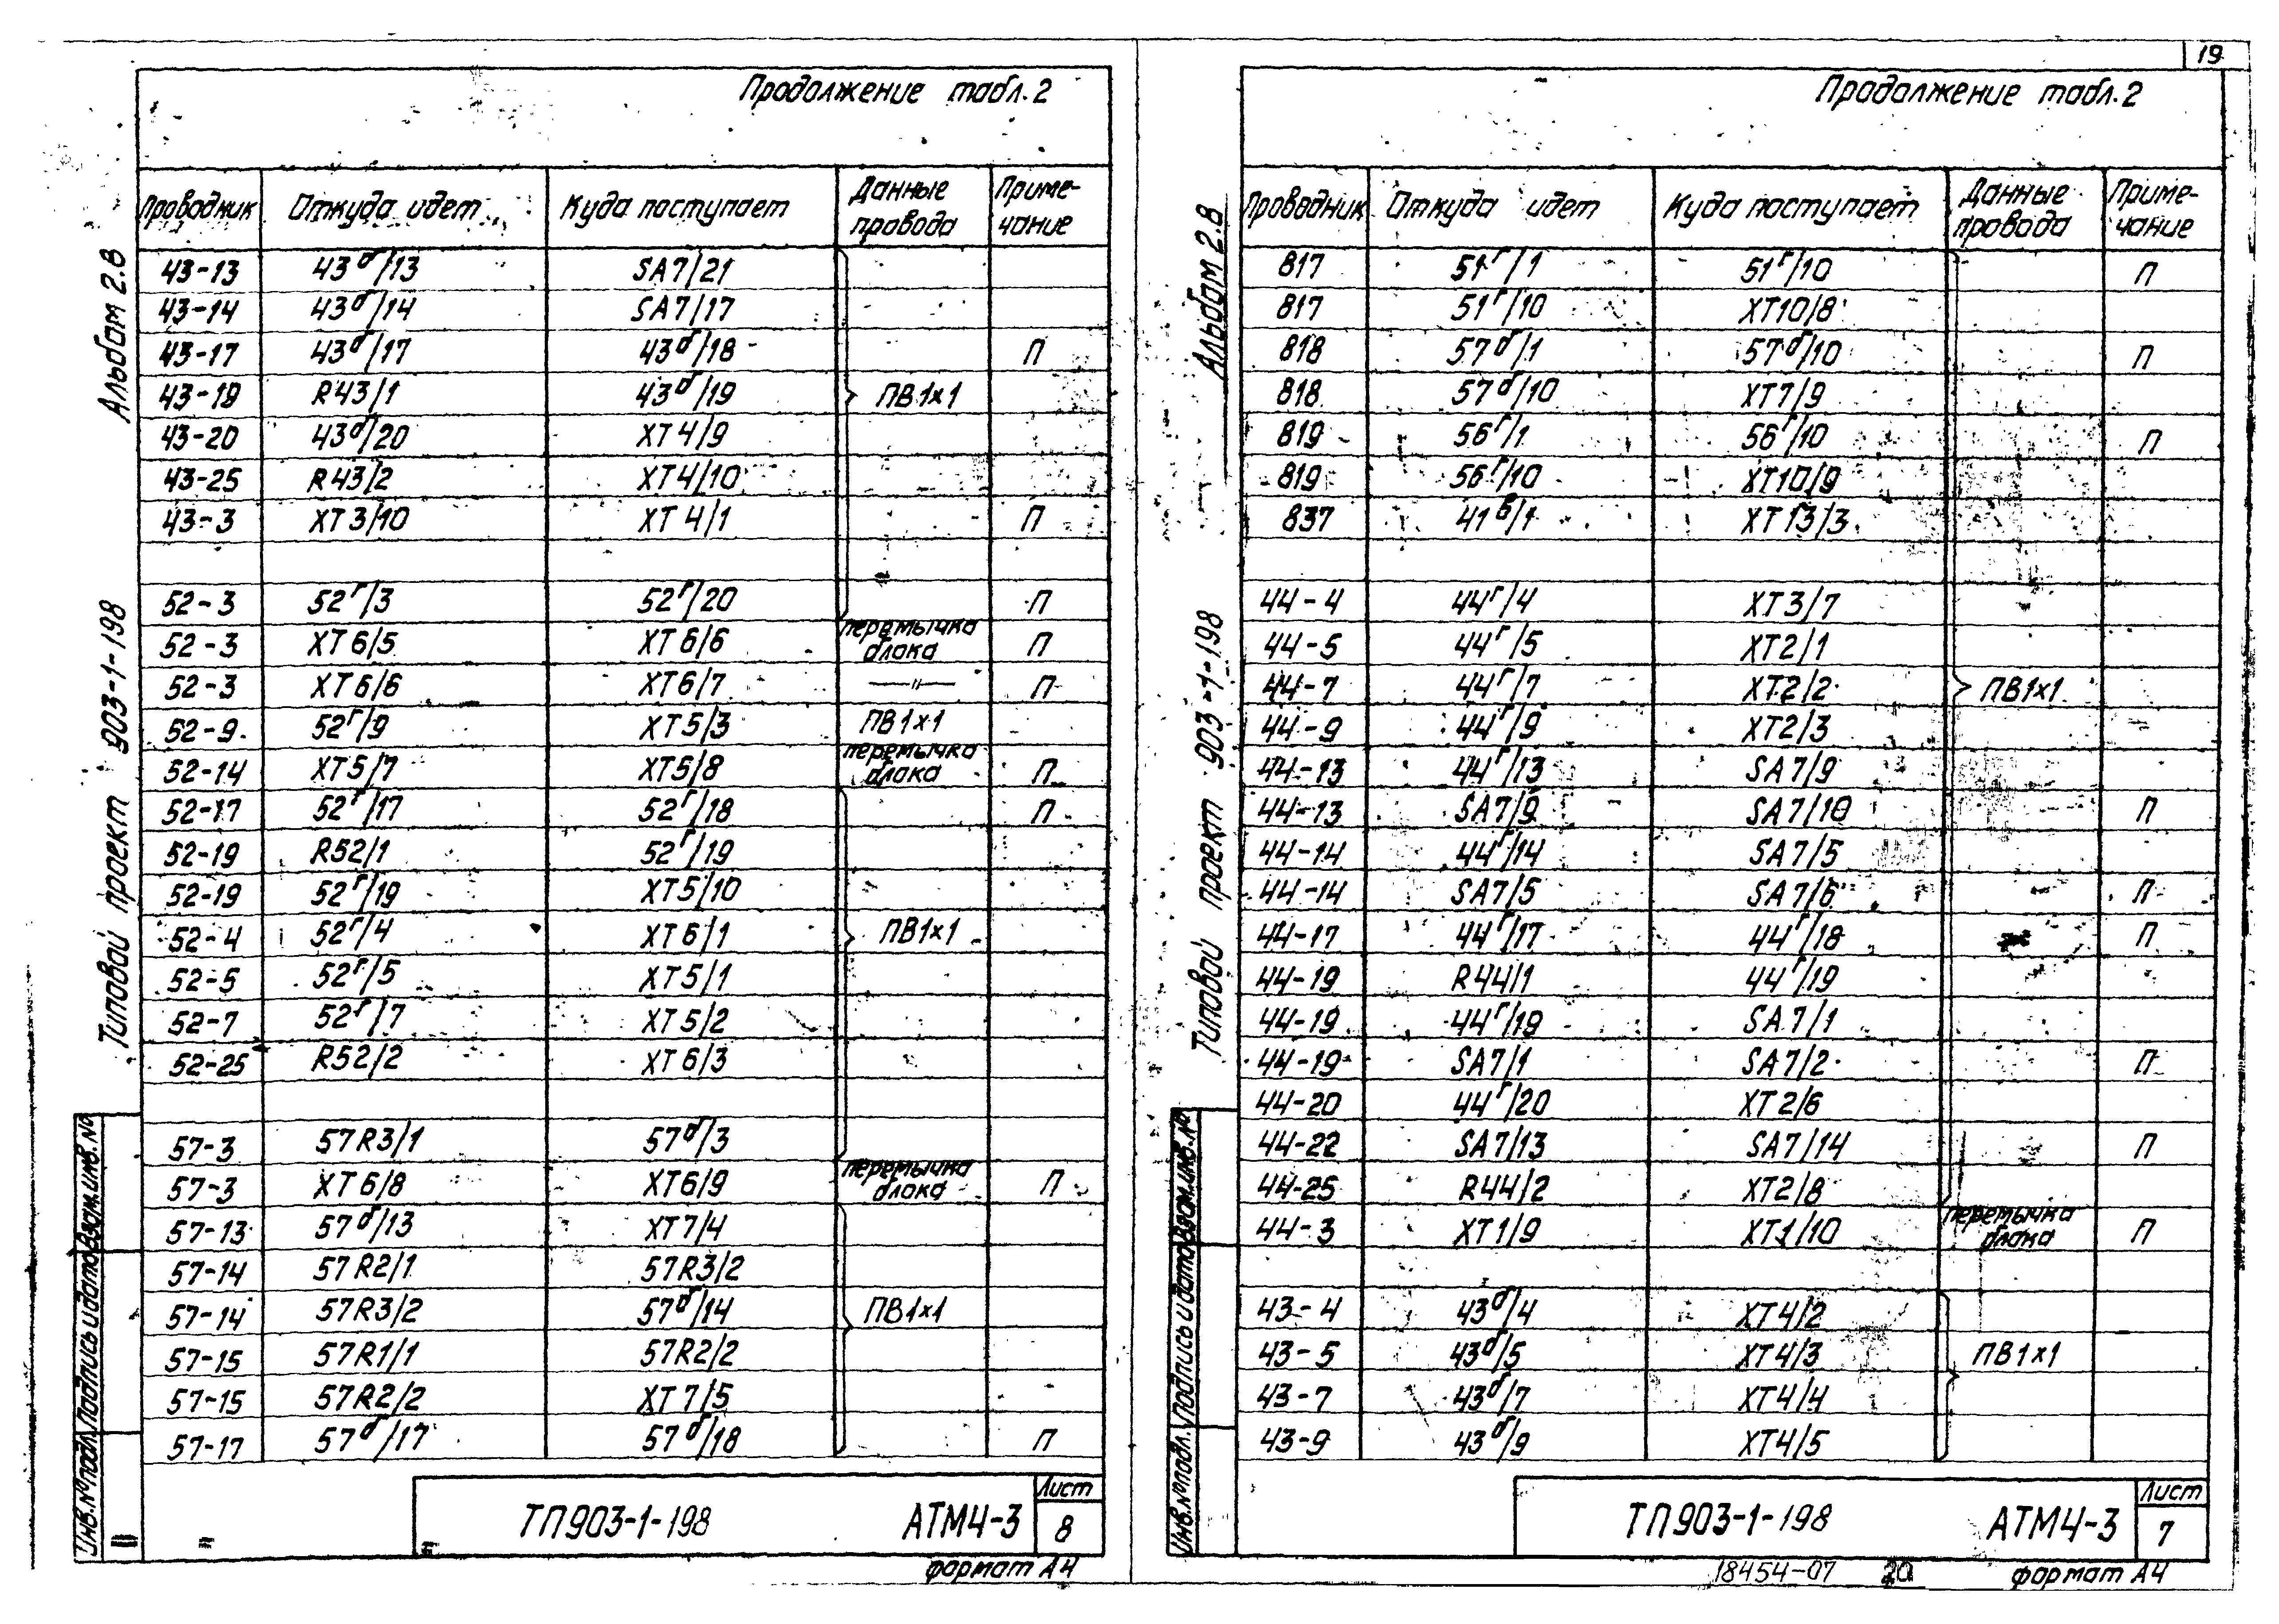 19
Продолжение табл. 2
Альбом 2.8
Типовой проект 903-1-198
Проводник Откуда идет Куда поступает Данные провода Приме-чание
43-13 43д/13 SA7/21
43-14 43д/14 SA7/17
43-17 43д/17 43д/18 П
43-19 R43/1 43д/19 ПВ1х1
43-20 43д/20 XT4/9
43-25 R43/2 XT4/10
43-3 XT3/10 XT4/1 П
52-3 52г/3 52г/20 П
52-3 XT6/5 XT6/6 перемычка блока П
52-3 XT6/6 XT6/7 —"— П
52-9 52г/9 XT5/3 ПВ1х1
52-14 XT5/7 XT5/8 перемычка блока П
52-17 52г/17 52г/18 П
52-19 R52/1 52г/19
52-19 52г/19 XT5/10
52-4 52г/4 XT6/1 ПВ1х1
52-5 52г/5 XT5/1
52-7 52г/7 XT5/2
52-25 R52/2 XT6/3
57-3 57R3/1 57д/3
57-3 XT6/8 XT6/9 перемычка блока П
57-13 57д/13 XT7/4
57-14 57R2/1 57R3/2
57-14 57R3/2 57д/14 ПВ1х1
57-15 57R1/1 57R2/2
57-15 57R2/2 XT7/5
57-17 57д/17 57д/18 П
Инв.№подл. Подпись и дата Взам.инв.№
ТП903-1-198 АТМ4-3 Лист 8
формат А4
Продолжение табл. 2
Альбом 2.8
Типовой проект 903-1-198
Проводник Откуда идет Куда поступает Данные провода Приме-чание
817 51г/1 51г/10 П
817 51г/10 XT10/8
818 57д/1 57д/10 П
818 57д/10 XT7/9
819 56г/1 56г/10 П
819 56г/10 XT10/9
837 41в/1 XT13/3
44-4 44г/4 XT3/7
44-5 44г/5 XT2/1
44-7 44г/7 XT2/2 ПВ1х1
44-9 44г/9 XT2/3
44-13 44г/13 SA7/9
44-13 SA7/9 SA7/10 П
44-14 44г/14 SA7/5
44-14 SA7/5 SA7/6 П
44-17 44г/17 44г/18 П
44-19 R44/1 44г/19
44-19 44г/19 SA7/1
44-19 SA7/1 SA7/2 П
44-20 44г/20 XT2/6
44-22 SA7/13 SA7/14 П
44-25 R44/2 XT2/8
44-3 XT1/9 XT1/10 перемычка блока П
43-4 43д/4 XT4/2
43-5 43д/5 XT4/3 ПВ1х1
43-7 43д/7 XT4/4
43-9 43д/9 XT4/5
Инв.№подл. Подпись и дата Взам.инв.№
ТП903-1-198 АТМ4-3 Лист 7
18454-07 20 формат А4